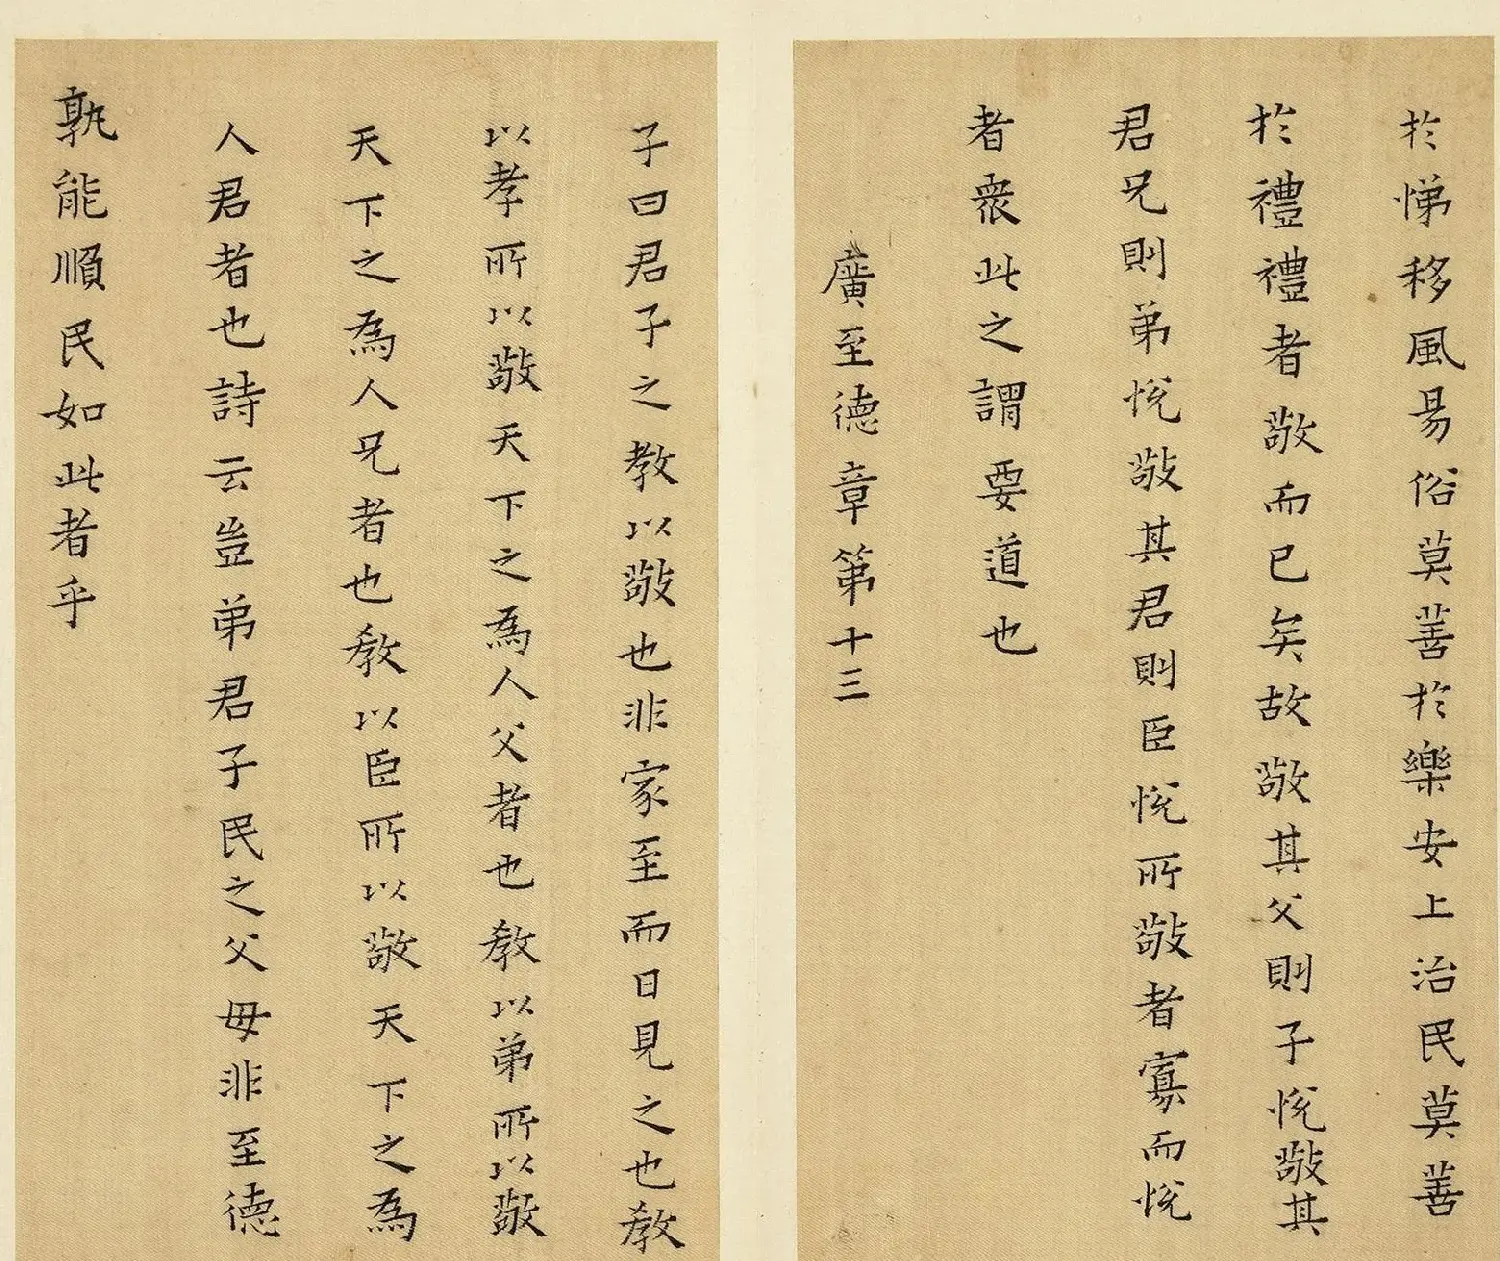 於悌移風易俗莫善於樂安上治民莫善
於禮禮者敬而已矣故敬其父則子悅敬其
君兄則弟悅敬其君則臣悅所敬者寡而悅
者衆此之謂要道也
廣至德章第十三
子曰君子之教以敬也非家至而日見之也教
以孝所以敬天下之為人父者也教以弟所以敬
天下之為人兄者也教以臣所以敬天下之為
人君者也詩云豈弟君子民之父母非至德
孰能順民如此者乎